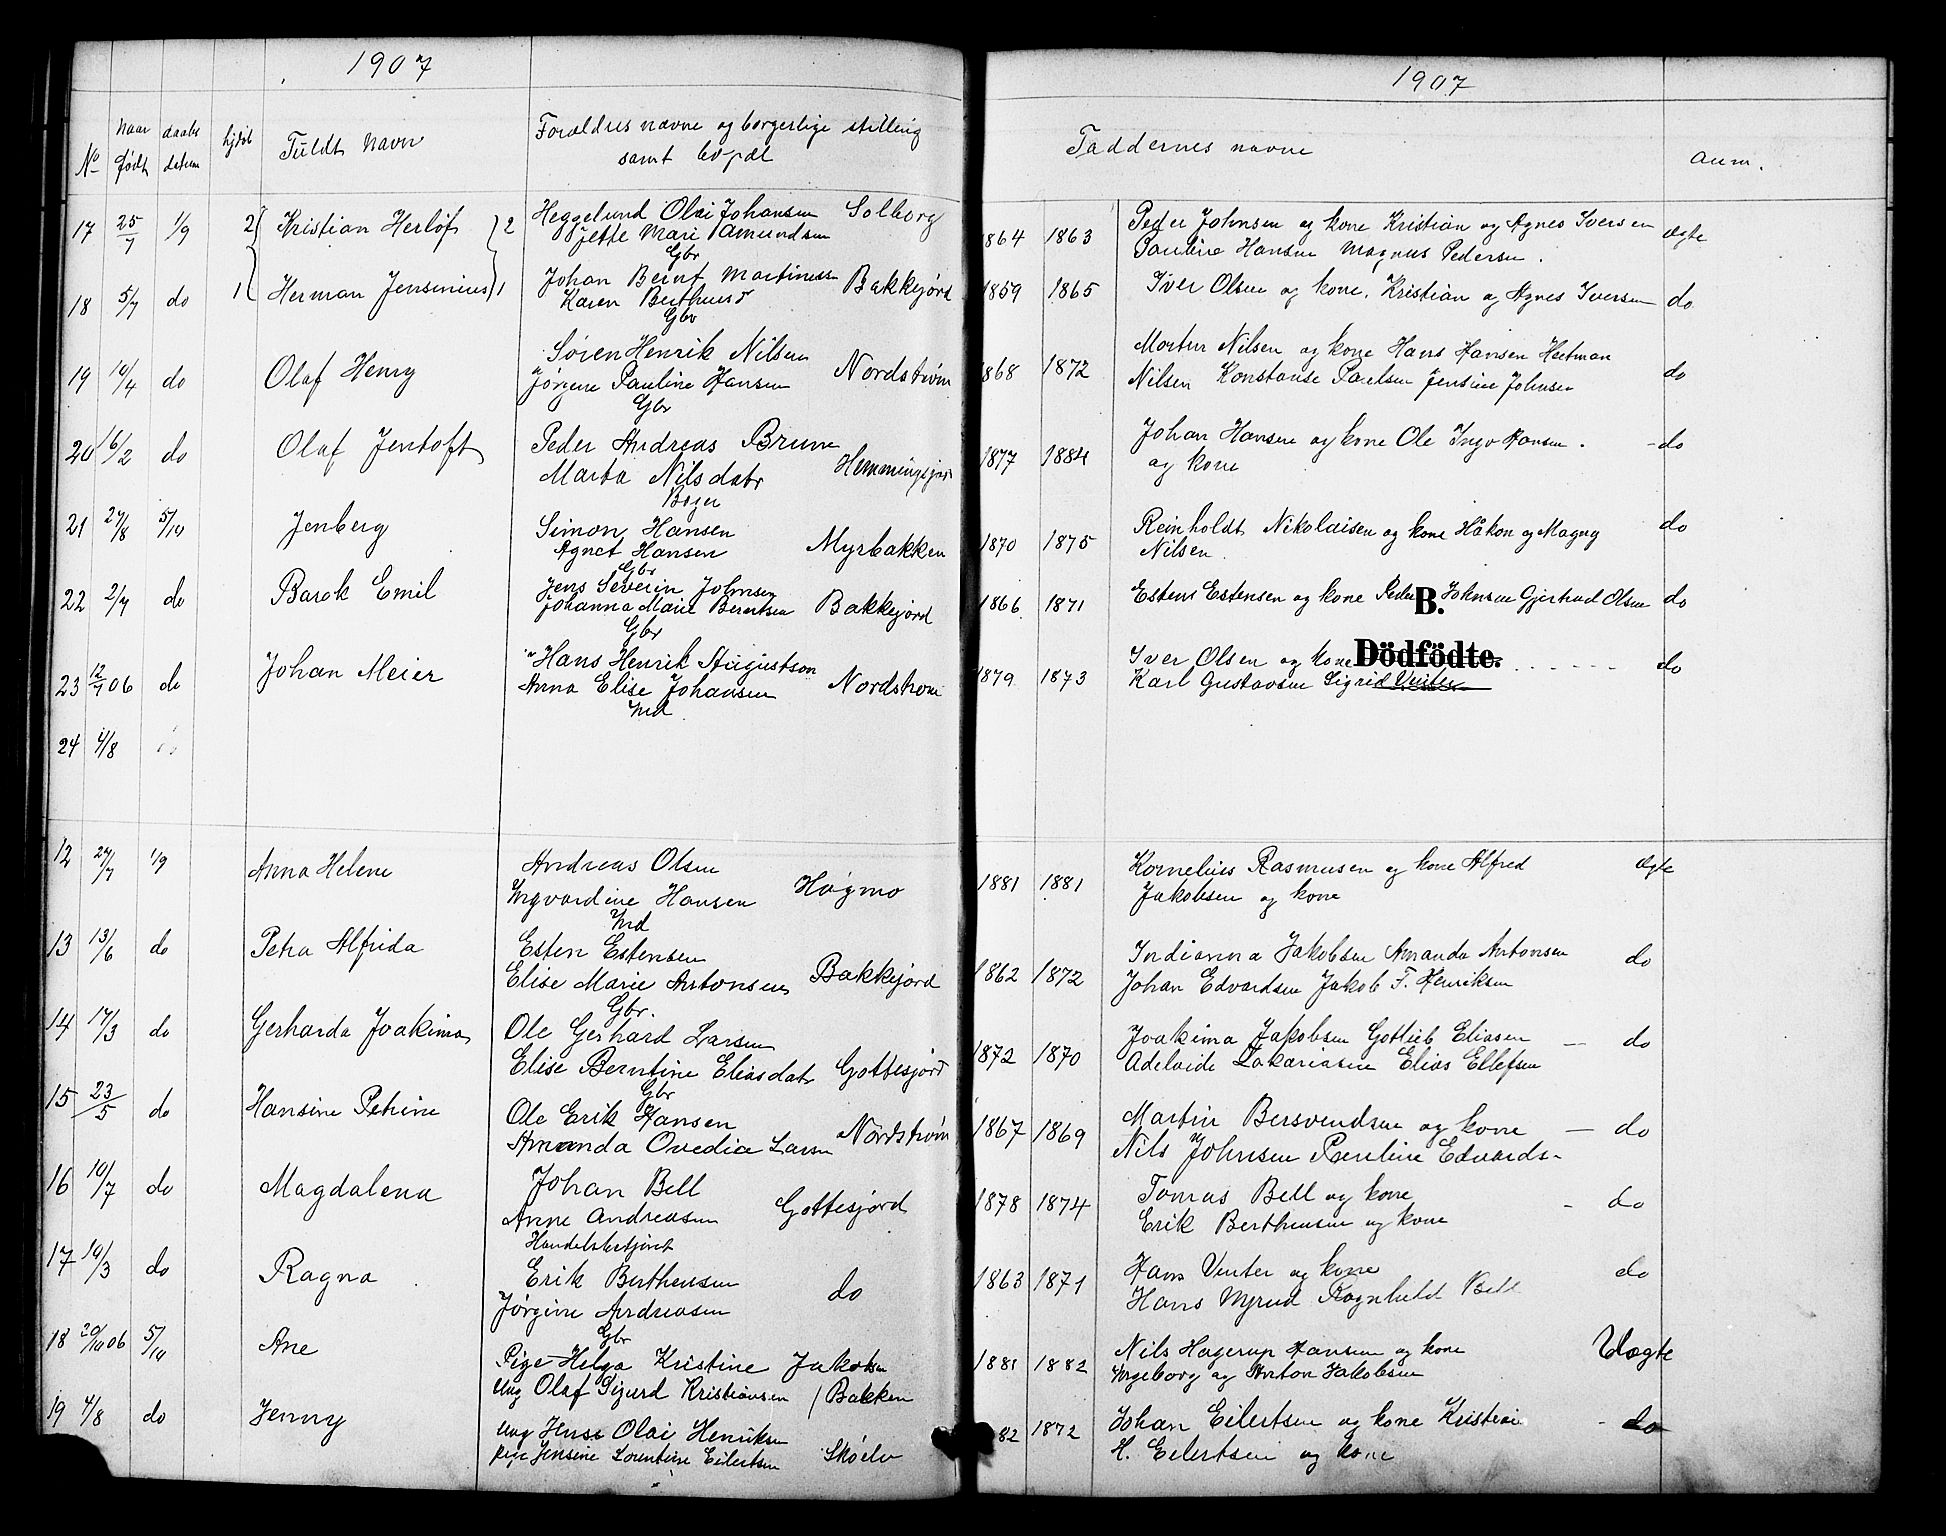 1907
1907
No naar født daabs datum hjdøbt Fuldt navn Forældres navne og borgerlige stilling samt bopæl
Faddernes navne anm.
17 25/7 1/9 2 Kristian Herlöf 2 Heggelund Olai Johansen Solborg
Jette Mari Amundsen
Gbr
1864 1863 Peder Johnsen og kone Kristian og Agnes Iversen ægte
Pauline Hansen Magnus Pedersen.
18 5/7 do 1 Herman Jensinius 1 Johan Bernt Martinussen Bakkejord
Karen
Gbr
1859 1865 Iver Olsen og kone. Kristian og Agnes Iversen do
19 10/4 do Olaf Henry Søren Henrik Nilsen Nordstrøm
Jørgine Pauline Hansen
Gbr
1868 1872 Morten Nilsen og kone Hans Hansen Hertman do
Nilsen Konstanse Paulsen Jensine Johnsen
20 16/2 do Olaf Jentoft Peder Andreas Brun
Marta Nilsdatr Hemmingsjord
1877 1884 Johan Hansen og kone Ole Ingv Hansen. - do
og kone
21 27/8 5/10 Jenberg Simon Hansen
Agnet Hansen Myrbakken
Gbr
1870 1875 Reinholdt Nikolaisen og kone Håkon og Magny do
Nilsen.
22 2/7 do Barok Emil Jens Severin Johnsen
Johanna Marie Berntsen Bakkejord
Gbr
1866 1871 Estens Estensen og kone Peder B. Johnsen Gjertrud Olsen do
23 12/7 06 do Johan Meier Hans Henrik Augustson
Anna Elise Johansen Nordstrom
Ind
1879 1873 Iver Olsen og kone Dödfödte. do
Karl Gustavsen Sigrid Venter
24 4/8 do
12 27/7 1/9 Anna Helene Andreas Olsen
Ingvardine Hansen Høgmo
Ind
1881 1881 Kornelius Rasmusen og kone Alfred ægte
Jakobsen og kone
13 13/6 do Petra Alfrida Esten Estensen
Elise Marie Antonsen Bakkejord
Gbr.
1862 1872 Indianna Jakobsen Amanda Antonsen do
Johan Edvardsen Jakob F. Henriksen
14 17/3 do Gerharda Joakima Ole Gerhard Larsen
Elise Berntine Eliasdatr Gottesjord
Gbr
1872 1870 Joakima Jakobsen Gotlieb Eliasen — do
Adelaide Zakariasen Elias Ellefsen
15 23/5 do Hansine Petrine Ole Erik Hansen
Amanda Ovedia Larsen Nordstrøm
1867 1869 Martin Bersvendsen og kone — do
Nils Johnsen Pauline Edvards-
16 10/7 do Magdalena Johan Bell
Anne Andreasen Gottesjord
Handelsbetjent
1878 1874 Tomas Bell og kone - do
Erik Berthensen og kone
17 10/3 do Ragna Erik Berthensen
Jørgine Andreasen do
Gbr
1863 1871 Hans Venter og kone do
Hans Myrud Ragnhild Bell
18 20/10 06 5/10 Ane Pige Helga Kristine Jakobsen
Ung Olaf Sigurd Kristiansen / Bakken
1881 1882 Nils Hagerup Hansen og kone Uægte
Ingeborg og Anton Jakobsen
19 4/8 do Jenny Ung Jens Olai Henriksen
pige Jensine Lorentine Eilertsen Skoelv
82 1872 Johan Eilertsen og kone Kristian - do
H. Eilertsen og kone